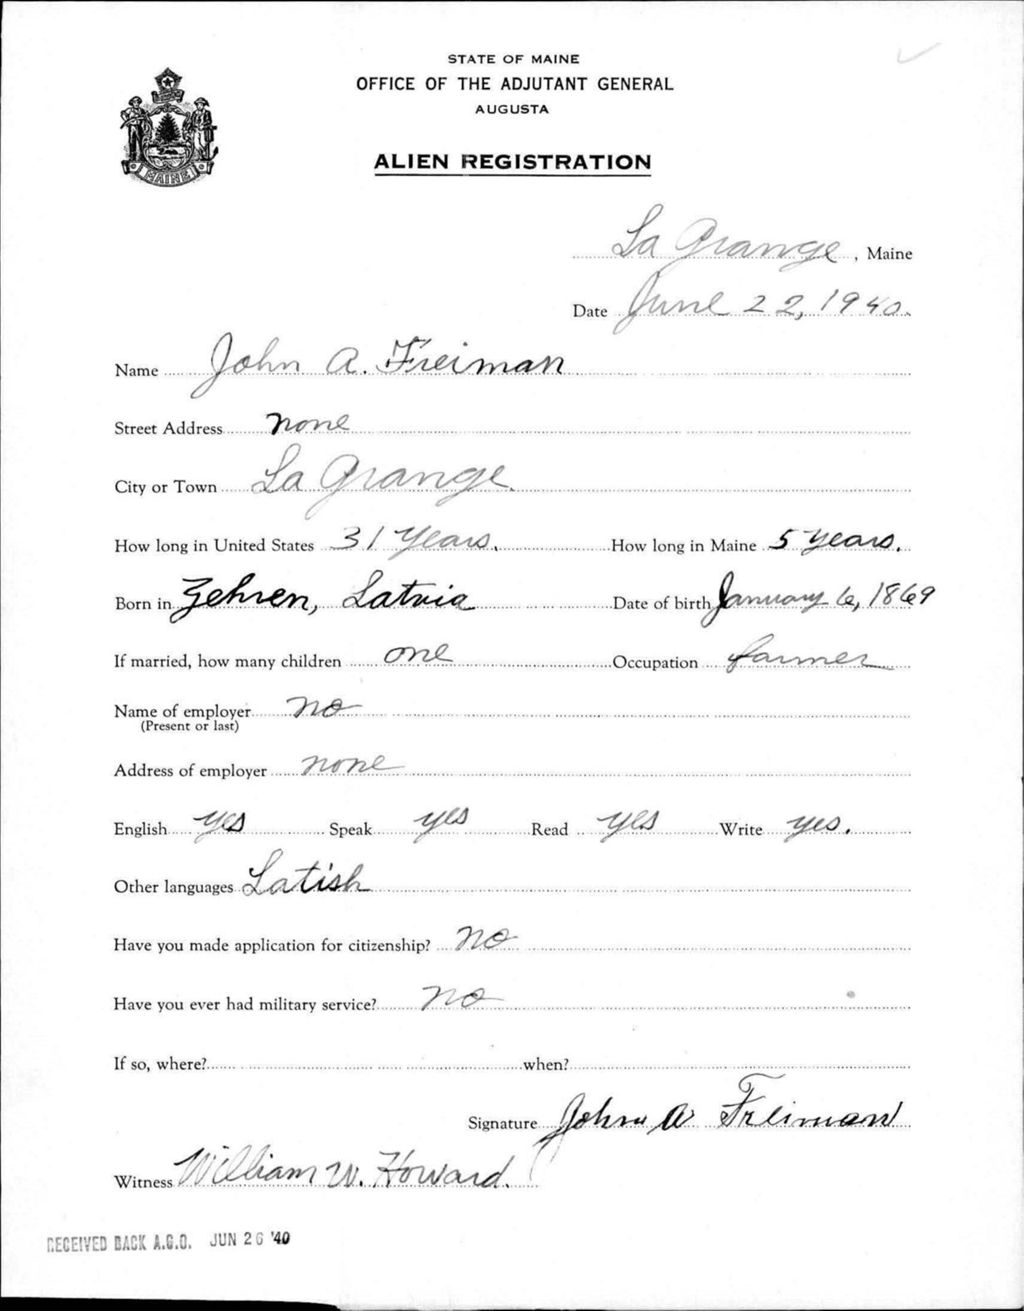 STATE OF MAINE
OFFICE OF THE ADJUTANT GENERAL
AUGUSTA
ALIEN REGISTRATION
MAINE
La Grange, Maine
Date June 22, 1940.
Name John A. Freiman
Street Address none
City or Town La Grange.
How long in United States 31 Years. How long in Maine 5 Years.
Born in Zehren, Latvia Date of birth January 6, 1869
If married, how many children one Occupation farmer
Name of employer no
(Present or last)
Address of employer none
English yes Speak yes Read yes Write yes.
Other languages Latish
Have you made application for citizenship? No
Have you ever had military service? no
If so, where? when?
Signature John A Freiman
Witness William W. Howard.
RECEIVED BACK A.G.O. JUN 26 '40